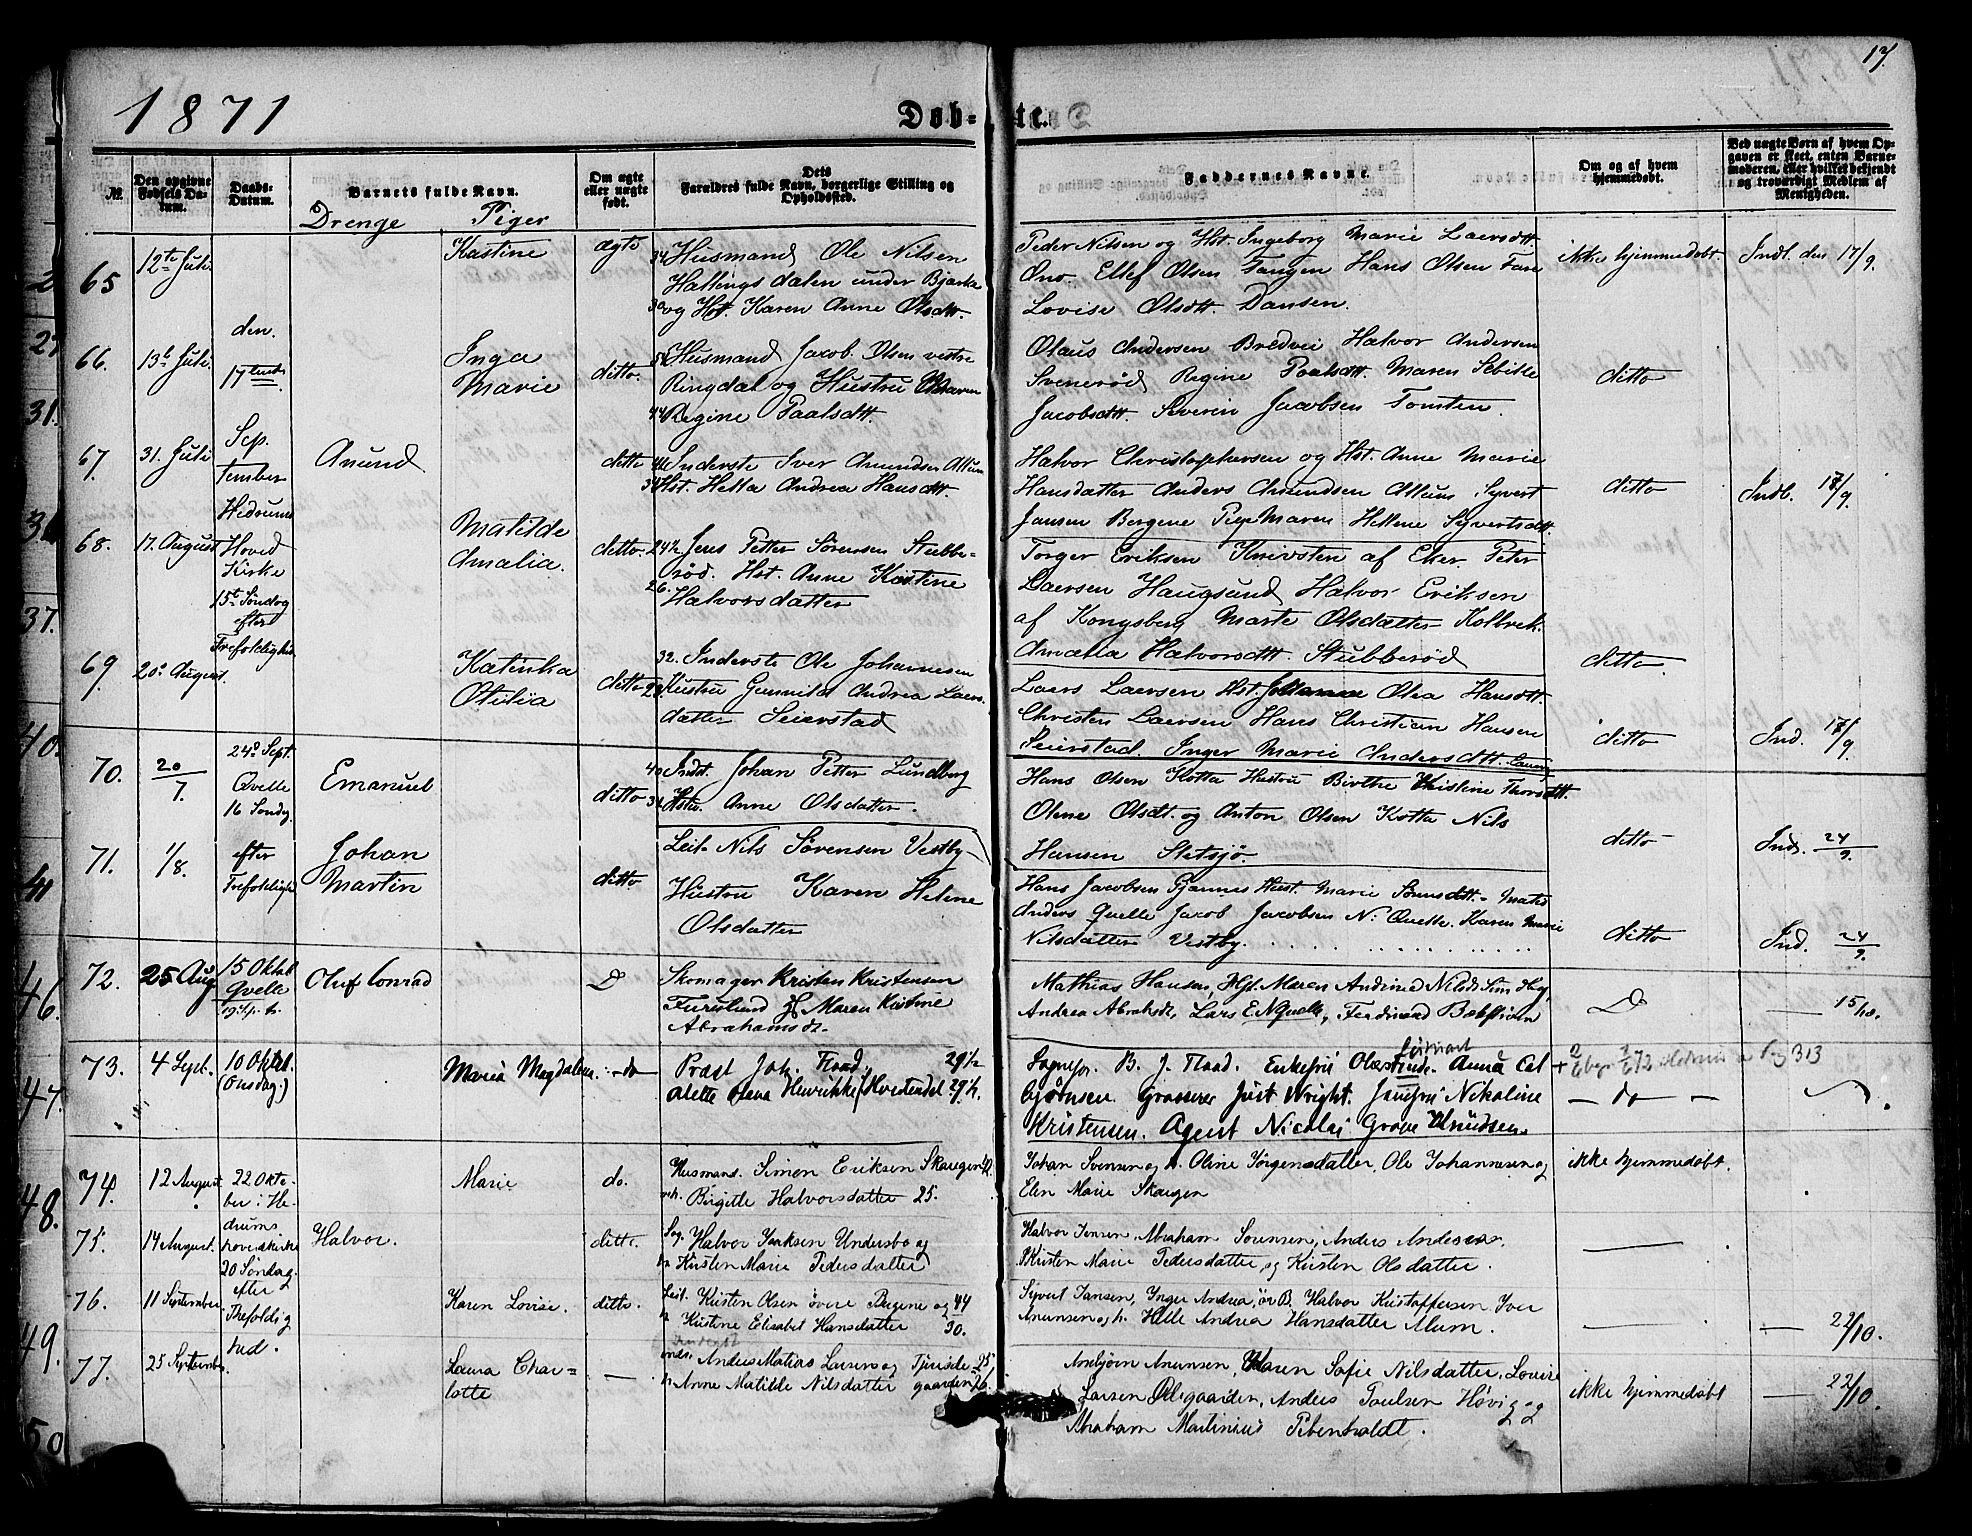 17.
1871
Døb-te.
№
Den opgivne Fødsels Datum.
Daabs-Datum.
Barnets fulde Navn.
Drenge Piger
Om ægte eller uægte født.
Dets Forældres fulde Navn, borgerlige Stilling og Opholdssted.
Faddernes Navne.
Om og af hvem hjemmedøbt.
Ved uægte Børn af hvem Opgaven er skeet, enten Barnemoderen, eller hvilket bekjendt og troværdigt Medlem af Menigheden.
65
12te Juli
Kastine
ægte
34 Husmand Ole Nilsen
Hallingsdalen under Bjerke
30 og Hst. Karen Anne Olsdtt.
Peder Nilsen og Hst. Ingeborg Marie Laersdtt.
Ono. Ellef Olsen Tangen Hans Olsen
Lovise Olsdtt. Dansen.
ikke hjemmedøbt.
Indl. den 17/9.
66.
13t Juli.
den
17tende
Inga
Marie
ditto.
Husmand Jacob Olsen vestre
Ringdal og Hustru Maren
44 Regine Paalsdtt.
Olaus Andersen Bredvei Halvor Andersen
Svenerød Regine Paalsdtt. Maren Sebille
Jacobsdtt. Severin Jacobsen Tomten.
ditto
67.
31. Juli
Sep.
tember
Hedrums
Anund
ditto
Inderste Iver Amundsen Allum
Hst. Hella Andrea Hansdtt.
Halvor Christophersen og Hst. Anne Marie
Hansdatter Anders Amundsen Allum Syvert
Jansen Bergene Pige Maren Hellene Syvertsdtt.
ditto
Indb. 17/9
68.
17. August
Hoved
Kirke
15t Søndag
efter
Trefoldighed
Matilde
Amalia.
ditto.
24½ Jens Petter Sørensen Stubbe-
rød. Hst. Anne Kastine
26. Halvorsdatter
Torger Eriksen Knivsten af Eker Peter
Laersen Haugsund Halvor Eriksen
af Kongsberg Marte Olsdatter Kolbrek.
Amalia Halvorsdtt. Stubberød
ditto
69.
20de August.
Katinka
Otilia
ditto
32. Inderste Ole Johannesen
Hustru Gunnild Andrea Laers-
datter Seierstad
Laers Laersen Hst. Johanne Olea Hansdtt.
Christen Laersen Hans Christian Hansen
Seierstad. Inger Marie Andersdtt.
ditto
Ind. 17/9
70.
20/7.
24de Sept.
Qvelle
16 Søndg.
Emanuel
ditto
Indst. Johan Petter Lundberg
Hstru. Anne Olsdatter.
Hans Olsen Kotta Hustru Birthe Christine Thorsdtt.
Olene Olsdt. og Anton Olsen Kotta Nils
Hansen Sletsjø.
ditto
Ind. 24/9.
71.
1/8.
efter
Trefoldighed
Johan
Martin
ditto
Leil. Nils Sørensen Vestby-
Hustru Karen Helene
Olsdatter
Hans Jacobsen Gjønnes Hust. Marie Sørensdtt. Mates
Anders Quelle Jacob Jacobsen N: Quelle. Karen Marie
Nilsdatter Vestby.
ditto
Ind. 24/9.
72.
25 Aug
15 Oktob
Qvelle
Oluf Conrad
D
Skomager Kristen Kristensen
Furulund Maren Kristine
Abrahamsdt.
Mathias Hansen, Hst. Maren Andrine Nilsdt Sundby,
Andrea Abrahsdt, Lars E. N Quelle, Ferdinand Bastian
D
15/10.
73.
4 Sept.
10 Oktbr.
(Onsdag.)
Maria Magdalena.
do
Præst Joh. Flood, 29½
Alette Olena Henrikke f. Hvistendal 29¼.
Sogneprs. B. J. Flood. Enkefru Anna
Grosserer Just Wright. Jomfru Nikoline
Kristensen. Agent Nicolai Grove Knudsen.
313
— do —
74.
12 August.
22 Okto-
ber i He-
drums
Marie
do.
Husmand. Simon Eriksen Skaugen 42.
Birgitte Halvorsdatter 25.
Johan Svensen og h. Oline Jørgensdatter, Ole Johannesen og
Elen Marie Skaugen
ikke hjemmedøbt.
75.
14 August.
hovedkirke
20 Søndag.
Halvor.
ditto.
Sag. Halvor Isaksen Undersbo og
h. Kirsten Marie Pedersdatter
Halvor Jensen, Abraham Sørensen, Anders Andersen.
Kirsten Marie Pedersdatter, og Kirsten Olsdatter.
76.
11 September
efter
Trefoldig
Karen Lovise.
ditto.
Leil. Kristen Olsen øvre Bergene og 44
h Kirstine Elisabet Hansdatter 30.
Syvert Jansen, Inger Andrea, ør B. Halvor Kristoffersen Iver
Amunsen og h. Helle Andrea Hansdatter Alum.
22/10.
77.
25 September.
hed.
Laura Char-
lotte
—
inds. Anders Matias Larsen og Tjurisde 25
h Anne Matilde Nilsdatter gaarden 26.
Arnbjørn Amunsen, Karen Sofie Nilsdatter, Lovise
Larsen Ødegaarden, Anders Poulsen Høvig og
Abraham Martinius Pibenholdt.
ikke hjemmedøbt
22/10.